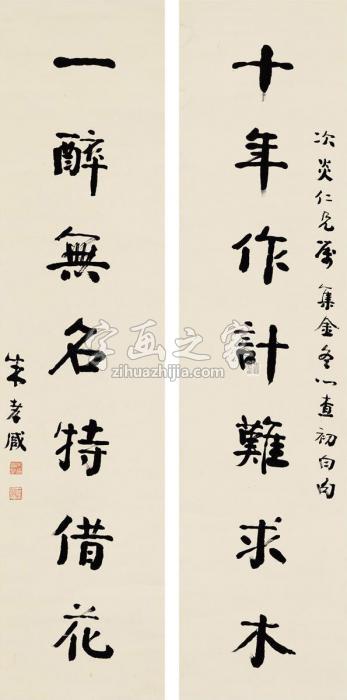 次炎仁兄属 集金冬心查初白句
十年作計難求木
一醉無名特借花
朱孝臧
字画之家
zihuazhijia.com